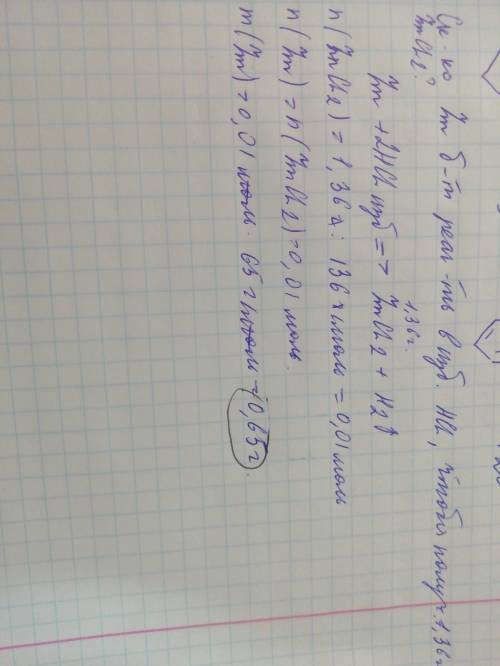 Ск-ко Zn б-т реаг-ть в изб. HCl, чтобы получ 1,36г
ZnCl2?
1,36г.
Zn + 2HCl изб => ZnCl2 + H2↑
n(ZnCl2) = 1,36г : 136 г/моль = 0,01 моль
n(Zn) = n(ZnCl2) = 0,01 моль.
m(Zn) = 0,01 моль · 65 г/моль = 0,65г.